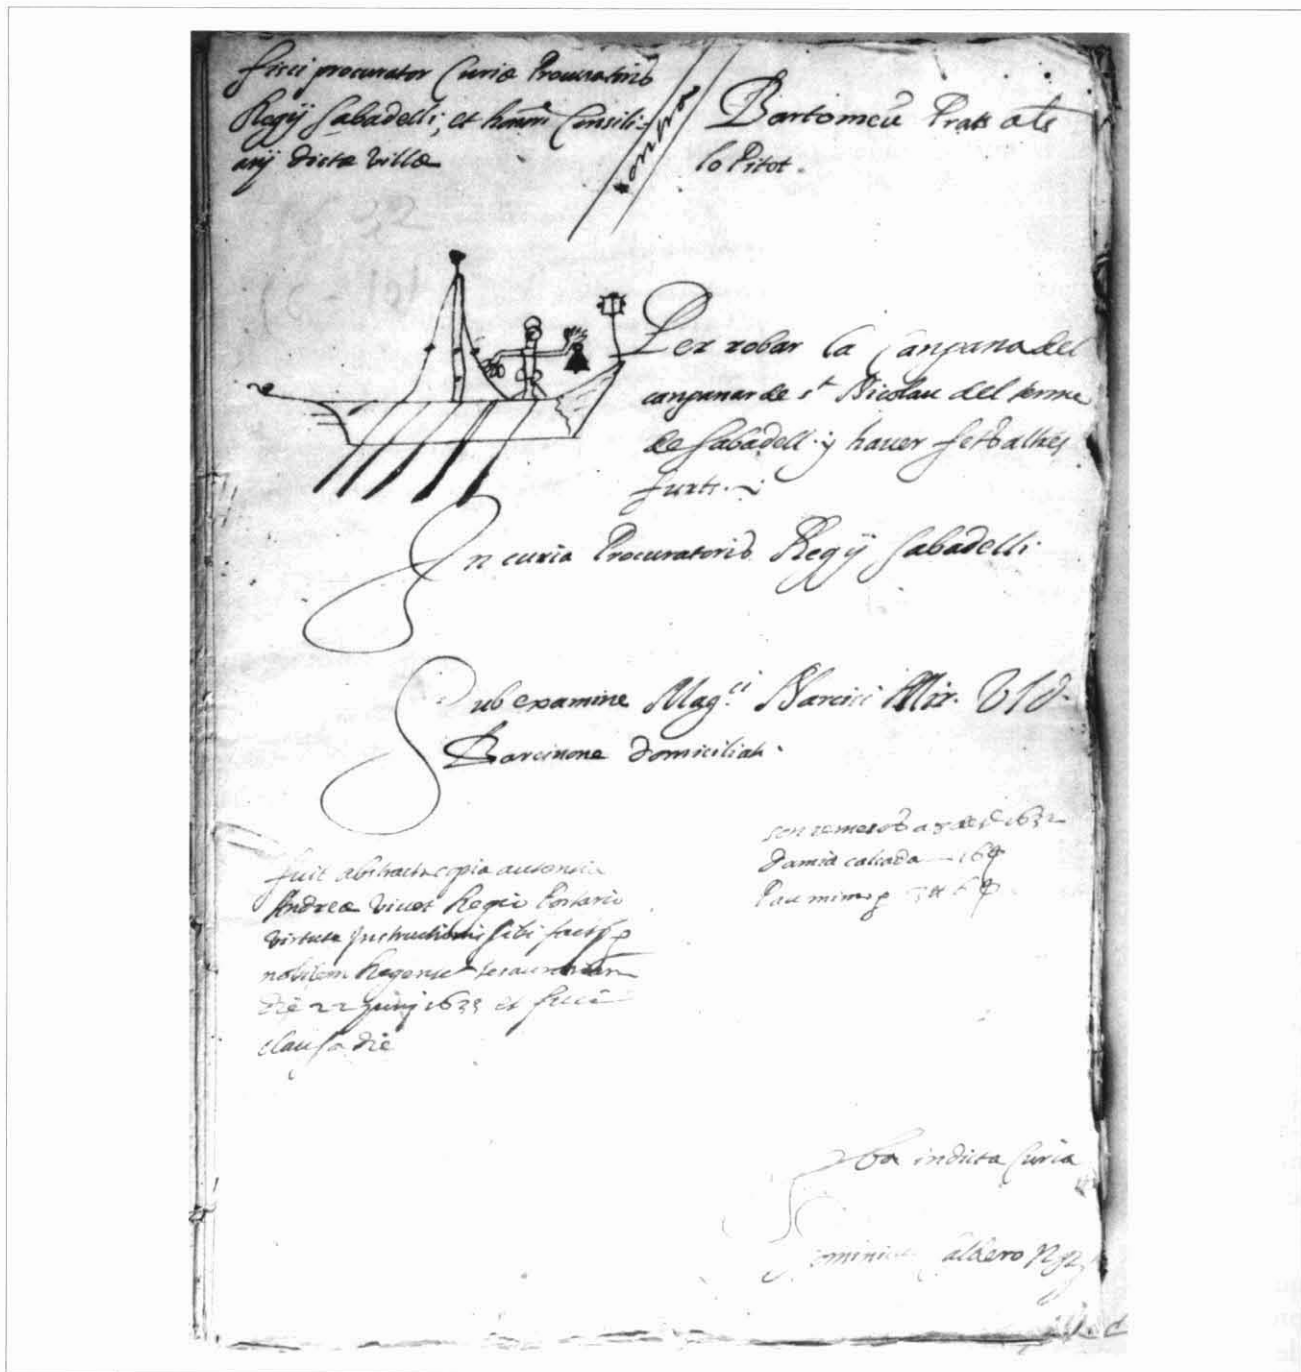 fisci procurator Curiæ Procuratoris
Regij Sabadelli, et honor. Consili-
arij dictæ villæ
contra
Bartomeu Prats als
lo Pitot.
1632
Per robar la Campana del
campanar de st Nicolau del terme
de Sabadell y hauer fets altres
furts.
In curia Procuratoris Regij Sabadelli
Sub examine Mag.ci Narcisi Mir. V I D.
Barcinone domiciliati.
1632
Damià calçada 16
Pau mimo
fuit abstracta copia autentica
Andreæ Viuet Regio Portario
virtute Instructionis sibi factæ p
nobilem Regentem
die 22 Junij 163 et
clausa die
in dicta Curia
albero